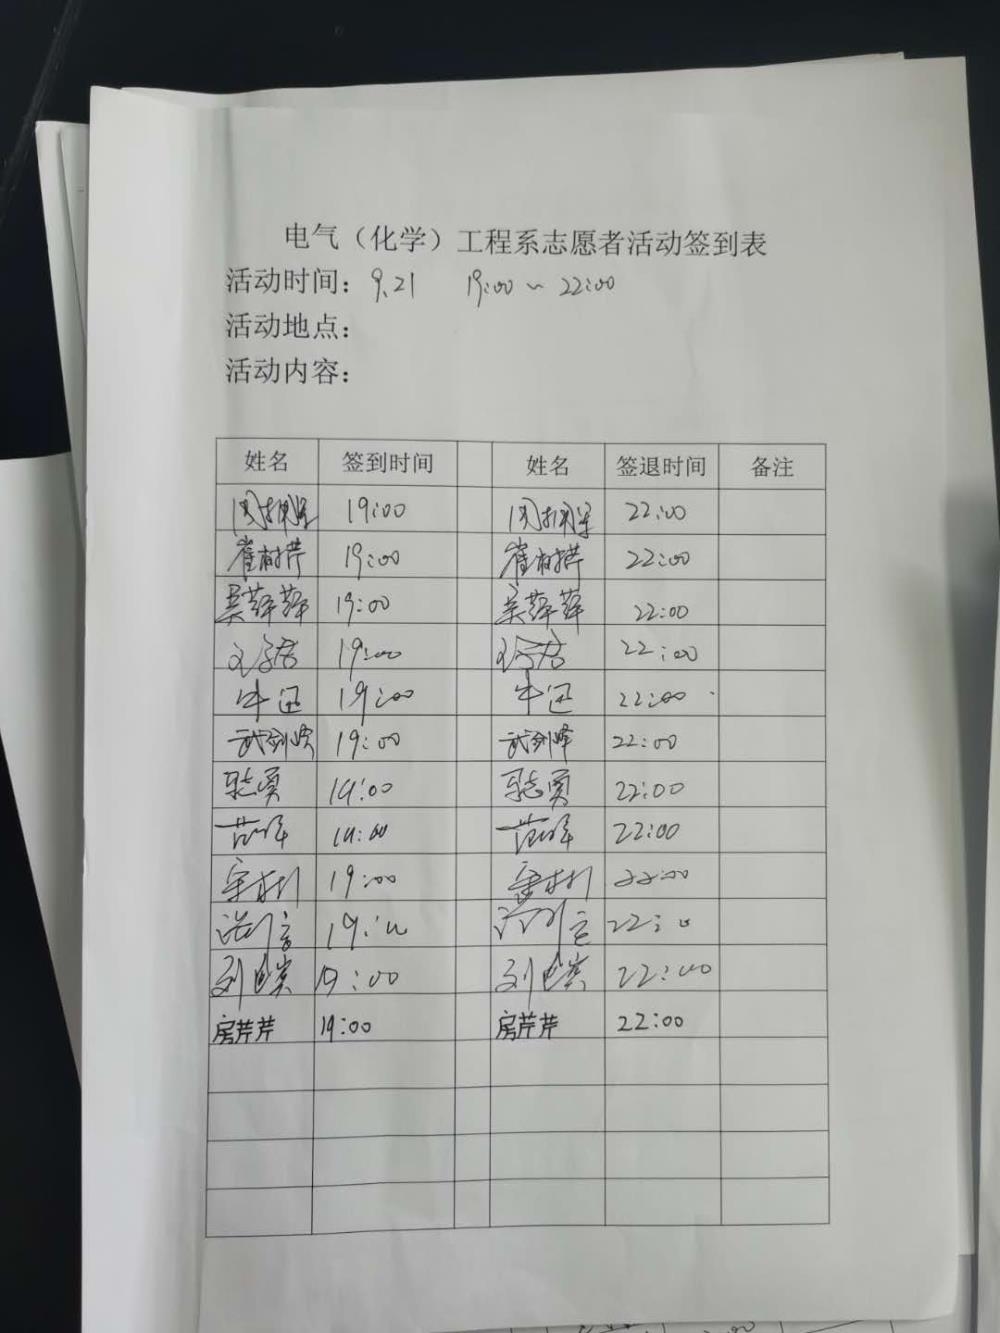 电气（化学）工程系志愿者活动签到表
活动时间：9.21 19:00 ~ 22:00
活动地点：
活动内容：
姓名 签到时间 姓名 签退时间 备注
19:00 22:00
崔树芹 19:00 崔树芹 22:00
吴萍萍 19:00 吴萍萍 22:00
19:00 22:00
牛迅 19:00 牛迅 22:00
武剑峰 19:00 武剑峰 22:00
19:00 22:00
范峰 19:00 范峰 22:00
19:00 22:00
19:00 22:00
刘 19:00 刘 22:00
房芹芹 19:00 房芹芹 22:00